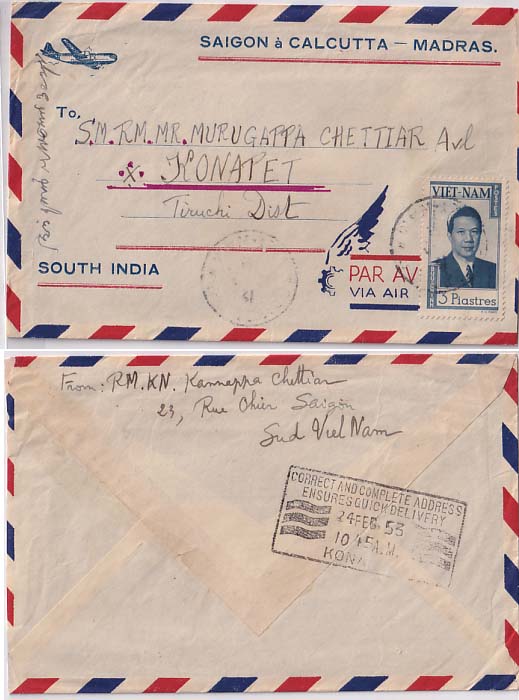 SAIGON à CALCUTTA — MADRAS.
To,
S.M.RM.MR. MURUGAPPA CHETTIAR Avl
KONAPET
Tiruchi Dist
SOUTH INDIA
PAR AV
VIA AIR
VIET-NAM
POSTES
3 Piastres
From: RM.KN. Kannappa Chettiar
23, Rue Ohier Saigon
Sud Viet Nam
CORRECT AND COMPLETE ADDRESS
ENSURES QUICK DELIVERY
24 FEB 53
10 45 A.M.
KONA